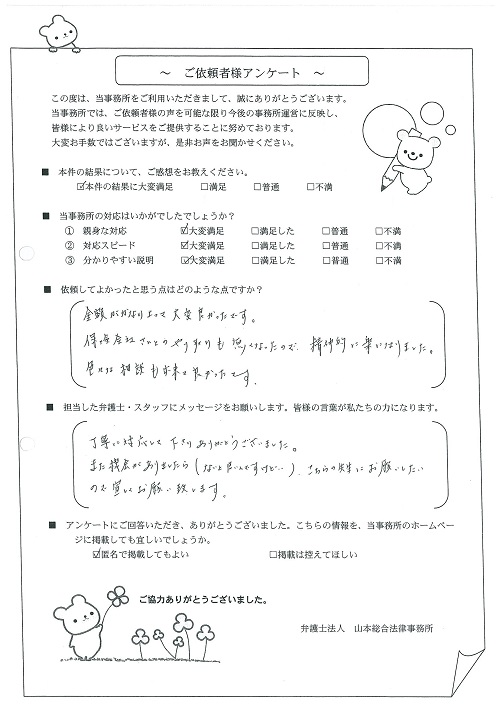 ～ ご依頼者様アンケート ～
この度は、当事務所をご利用いただきまして、誠にありがとうございます。
当事務所では、ご依頼者様の声を可能な限り今後の事務所運営に反映し、
皆様により良いサービスをご提供することに努めております。
大変お手数ではございますが、是非お声をお聞かせください。
■ 本件の結果について、ご感想をお教えください。
☑本件の結果に大変満足 □満足 □普通 □不満
■ 当事務所の対応はいかがでしたでしょうか？
① 親身な対応 ☑大変満足 □満足した □普通 □不満
② 対応スピード ☑大変満足 □満足した □普通 □不満
③ 分かりやすい説明 ☑大変満足 □満足した □普通 □不満
■ 依頼してよかったと思う点はどのような点ですか？
金額がかなり上って大変良かったです。
保険会社さんとのやりとりも無くなったので、精神的に楽になりました。
色々な相談も出来て良かったです。
■ 担当した弁護士・スタッフにメッセージをお願いします。皆様の言葉が私たちの力になります。
丁寧に対応して下さりありがとうございました。
また機会がありましたら（ないと良いんですけど…）、こちらの先生にお願いしたい
ので宜しくお願い致します。
■ アンケートにご回答いただき、ありがとうございました。こちらの情報を、当事務所のホームペー
ジに掲載しても宜しいでしょうか。
☑匿名で掲載してもよい □掲載は控えてほしい
ご協力ありがとうございました。
弁護士法人 山本総合法律事務所